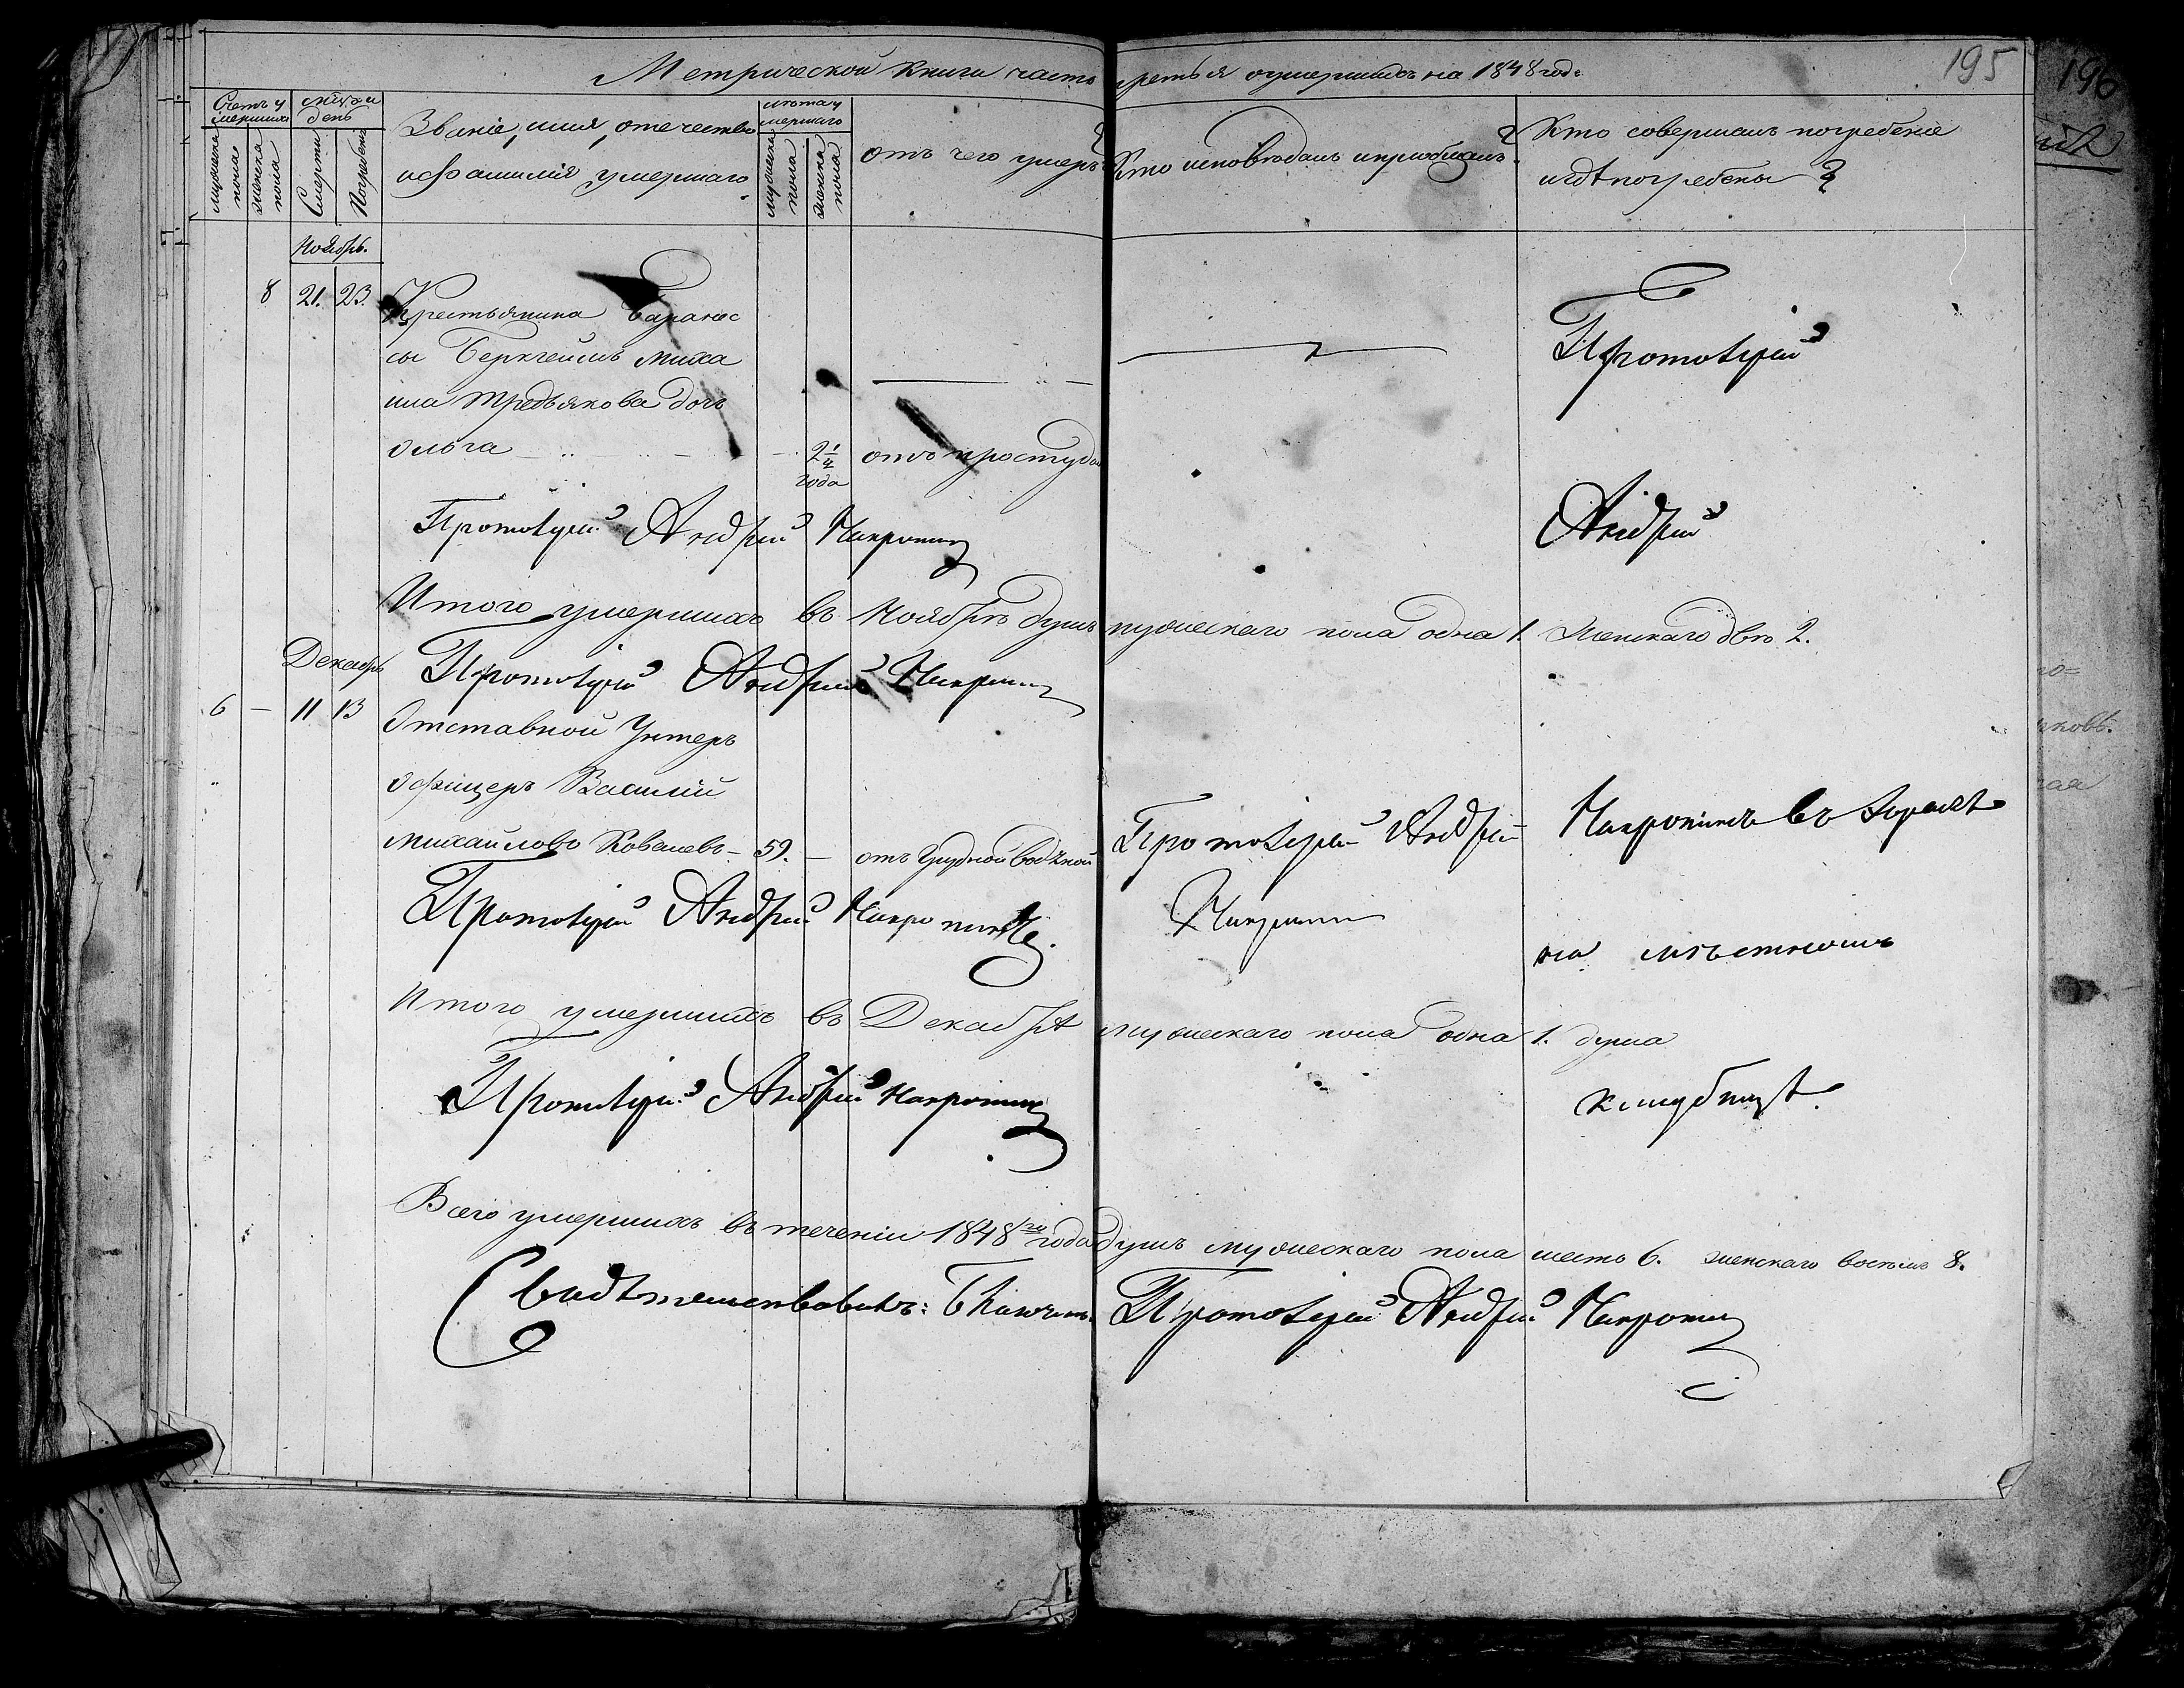 Метрической книги часть третья о умерших на 1848 годъ.
195
196
Счетъ умершихъ
мужеска пола
женска пола
мѣс. и день
Смерти
Погребені
Званіе, имя, отечество и фамилія умершаго.
лѣта умершаго
мужеска пола
женска пола
отъ чего умеръ?
Кто исповѣдалъ и пріобщалъ?
Кто совершалъ погребеніе и гдѣ погребены?
Ноябрь.
8 21. 23. Крестьянина
Миха
ила Тредьякова дочь
Ольга 2 1/4 года отъ простуды
Протоіерей
Андрей
Протоіерей Андрей
Итого умершихъ въ Ноябрѣ душъ мужескаго пола одна 1. Женскаго двѣ 2.
Протоіерей Андрей
Декабрь
6 — 11 13 Отставной Унтеръ
Офицеръ Василій
Михайловъ Ковалевъ — 59. — отъ грудной водяной
Протоіерей Андрей
въ
Протоіерей Андрей
на мѣстномъ
Итого умершихъ въ Декабрѣ мужескаго пола одна 1. душа
Протоіерей Андрей
кладбищѣ.
Всего умершихъ въ теченіи 1848го года душъ мужескаго пола шесть 6. женскаго восемь 8.
Свидѣтельствовалъ: Протоіерей Андрей